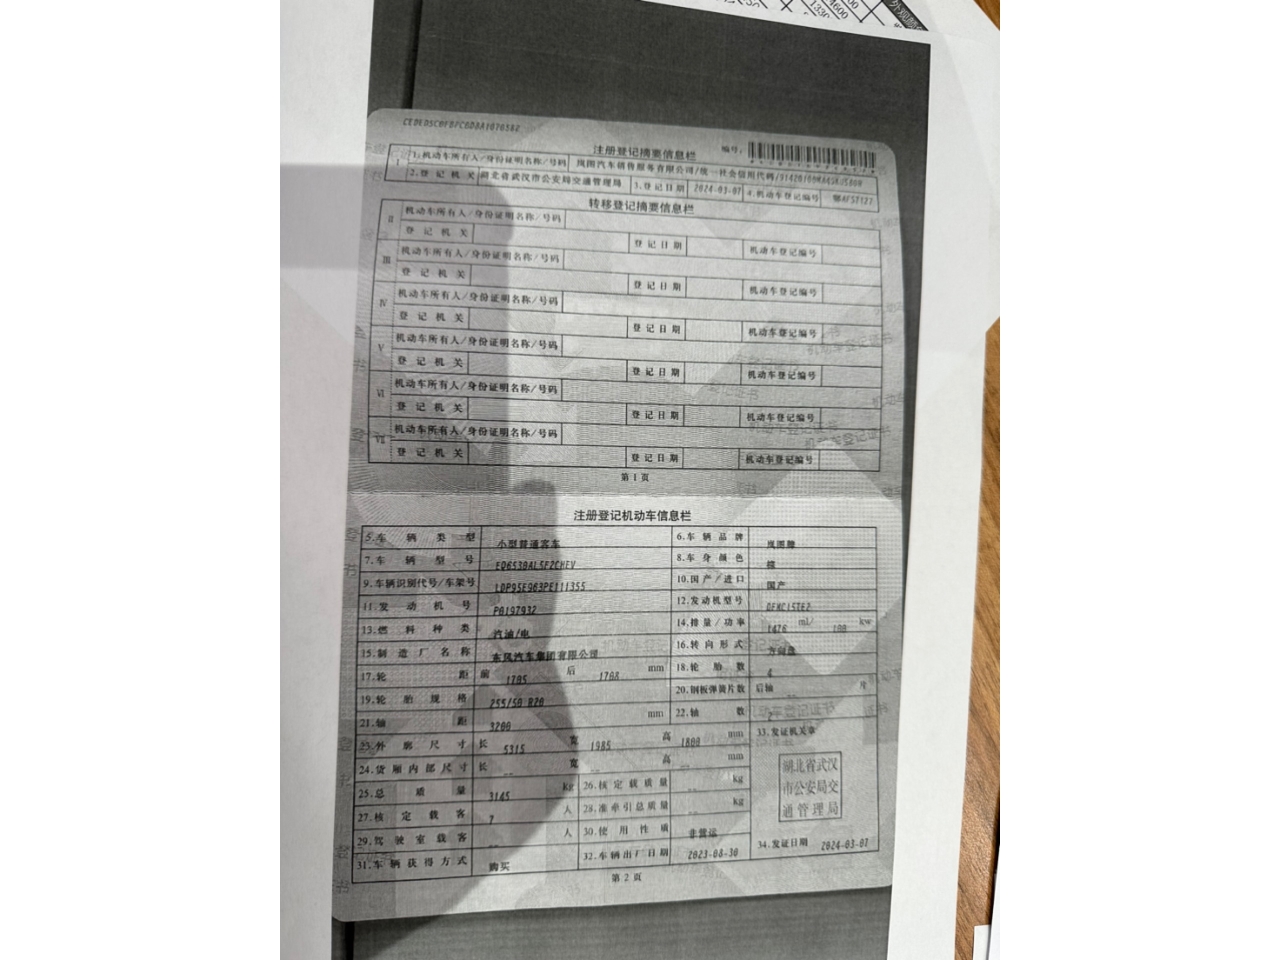 外观
4600
1330
注册登记摘要信息栏
编号:
I 1.机动车所有人/身份证明名称/号码 岚图汽车销售服务有限公司/统一社会信用代码/
2.登记机关 湖北省武汉市公安局交通管理局 3.登记日期 2024-03-07 4.机动车登记编号
转移登记摘要信息栏
II 机动车所有人/身份证明名称/号码
登记机关 登记日期 机动车登记编号
III 机动车所有人/身份证明名称/号码
登记机关 登记日期 机动车登记编号
IV 机动车所有人/身份证明名称/号码
登记机关 登记日期 机动车登记编号
V 机动车所有人/身份证明名称/号码
登记机关 登记日期 机动车登记编号
VI 机动车所有人/身份证明名称/号码
登记机关 登记日期 机动车登记编号
VII 机动车所有人/身份证明名称/号码
登记机关 登记日期 机动车登记编号
第1页
注册登记机动车信息栏
5.车辆类型 小型普通客车 6.车辆品牌 岚图牌
7.车辆型号 8.车身颜色
9.车辆识别代号/车架号 LDP95E963PE111355 10.国产/进口 国产
11.发动机号 P0197932 12.发动机型号 DFMC15TE2
13.燃料种类 汽油/电 14.排量/功率 1476 ml/ 100 kw
15.制造厂名称 东风汽车集团有限公司 16.转向形式 方向盘
17.轮距 前 1705 后 1708 mm 18.轮胎数 4
19.轮胎规格 255/50 R20 20.钢板弹簧片数 后轴 -- 片
21.轴距 3200 mm 22.轴数 2
23.外廓尺寸 长 5315 宽 1985 高 1800 mm 33.发证机关章
24.货厢内部尺寸 长 -- 宽 -- 高 -- mm
25.总质量 3145 kg 26.核定载质量 -- kg
27.核定载客 7 人 28.准牵引总质量 -- kg
29.驾驶室载客 -- 人 30.使用性质 非营运
31.车辆获得方式 购买 32.车辆出厂日期 2023-08-30 34.发证日期 2024-03-07
湖北省武汉
市公安局交
通管理局
第2页